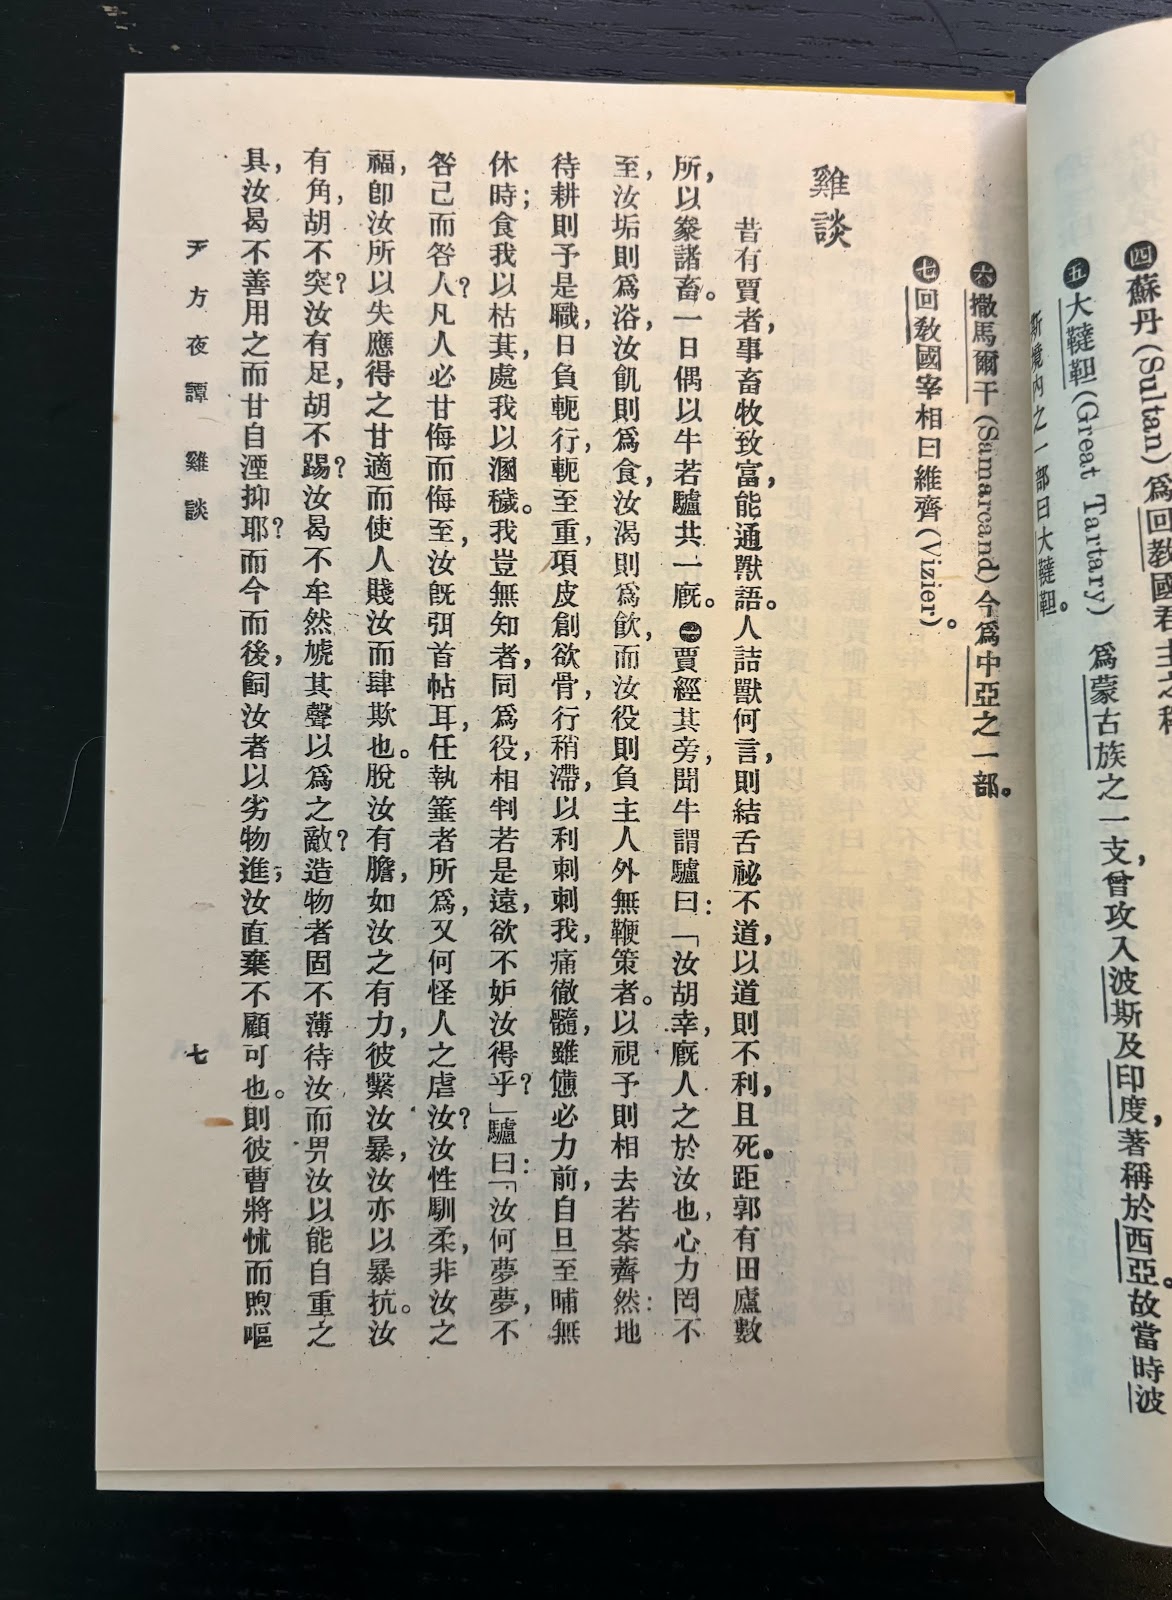 四蘇丹(Sultan)爲回教國君主之稱
五大韃靼(Great Tartary) 爲蒙古族之一支，曾攻入波斯及印度，著稱於西亞。故當時波
斯境內之一部曰大韃靼。
六撒馬爾干(Samarcand)今爲中亞之一部。
七回教國宰相曰維齊(Vizier)。
雞談
昔有賈者，事畜牧致富，能通獸語。人詰獸何言，則結舌祕不道，以道則不利，且死。距郭有田廬數
所，以豢諸畜。一日偶以牛若驢共一廐。一賈經其旁，聞牛謂驢曰：「汝胡幸，廐人之於汝也，心力罔不
至，汝垢則爲浴，汝飢則爲食，汝渴則爲飮，而汝役則負主人外無鞭策者。以視予則相去若荼薺然：地
待耕則予是職，日負軛行，軛至重，項皮創欲骨，行稍滯，以利刺刺我，痛徹髓，雖憊必力前，自旦至晡無
休時；食我以枯萁，處我以溷穢。我豈無知者，同爲役，相判若是遠，欲不妒汝得乎？」驢曰：「汝何夢夢，不
咎己而咎人？凡人必甘侮而侮至，汝旣弭首帖耳，任執箠者所爲，又何怪人之虐汝？汝性馴柔，非汝之
福，卽汝所以失應得之甘適而使人賤汝而肆欺也。脫汝有膽，如汝之有力，彼繫汝暴，汝亦以暴抗。汝
有角，胡不突？汝有足，胡不踢？汝曷不牟然虓其聲以爲之敵？造物者固不薄待汝而畀汝以能自重之
具，汝曷不善用之而甘自湮抑耶？而今而後，飼汝者以劣物進；汝直棄不顧可也。則彼曹將怵而煦嘔
天方夜譚 雞談 七